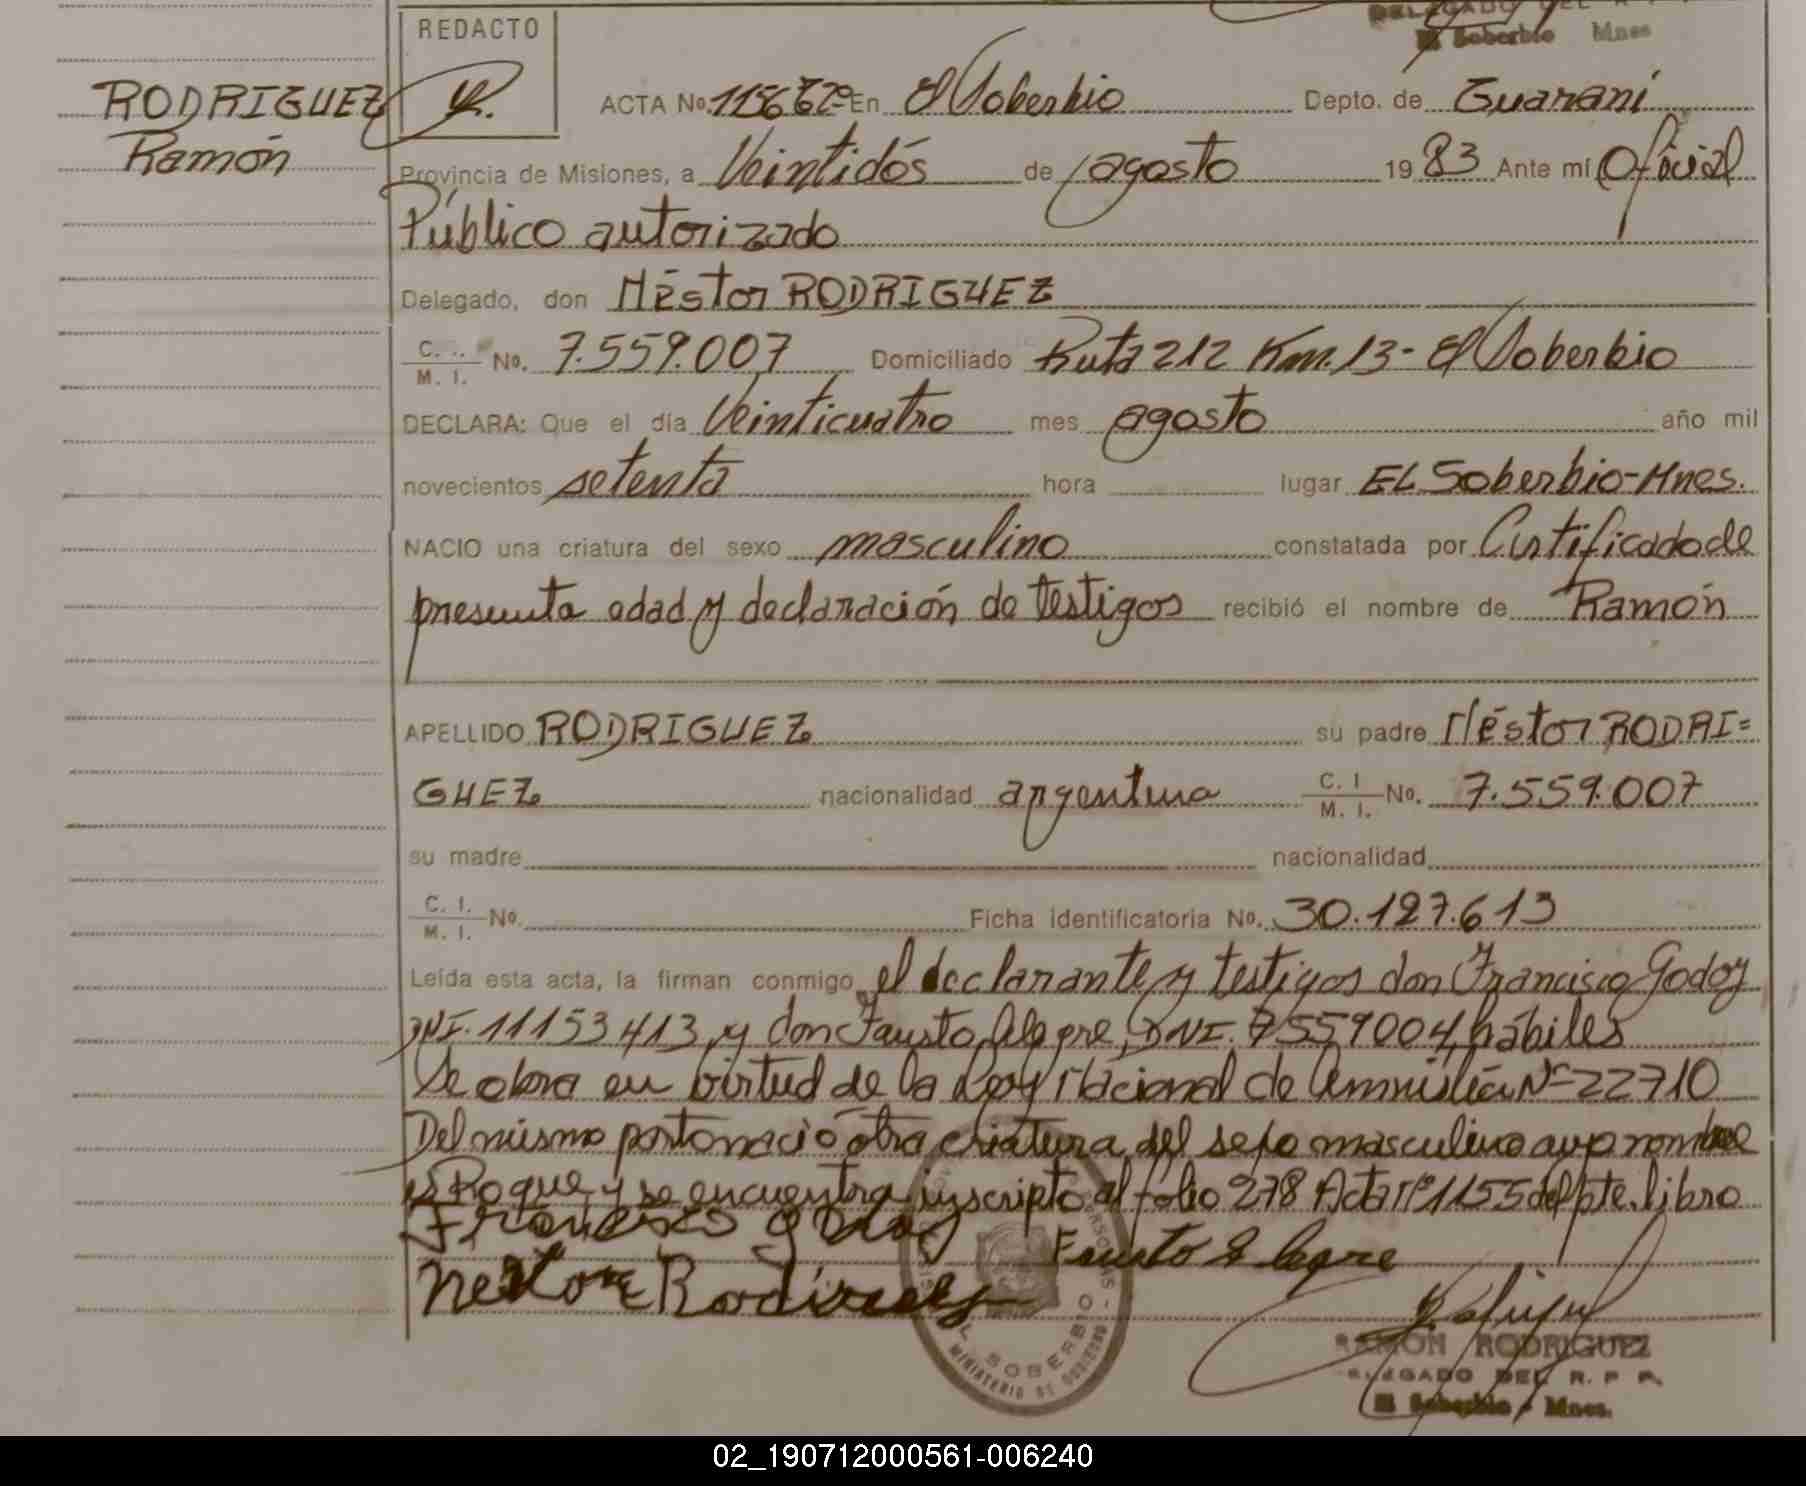 DELEGADO DEL R. P.
El Soberbio Mnes
REDACTO
RODRIGUEZ
Ramón
ACTA No. 1156 Eº En El Soberbio Depto. de Guaraní
Provincia de Misiones, a Veintidós de agosto 1983 Ante mí Oficial
Público autorizado
Delegado, don Néstor RODRIGUEZ
C. I. M. I. No. 7.559.007 Domiciliado Ruta 212 Km. 13 - El Soberbio
DECLARA: Que el día Veinticuatro mes agosto año mil
novecientos setenta hora lugar EL Soberbio-Mnes.
NACIO una criatura del sexo masculino constatada por Certificado de
presunta edad y declaración de testigos recibió el nombre de Ramón
APELLIDO RODRIGUEZ su padre Néstor RODRI=
GUEZ nacionalidad argentina C. I M. I. No. 7.559.007
su madre nacionalidad
C. I. M. I. No. Ficha identificatoria No. 30.127.613
Leída esta acta, la firman conmigo el declarante y testigos don Francisco Godoy
DNI. 11153413 y don Fausto Alegre, DNI. 7559004, hábiles
Se obra en virtud de la Ley Nacional de Amnistía Nº 22710
Del mismo parto nació otra criatura del sexo masculino cuyo nombre
es Roque y se encuentra inscripto al folio 278 Acta nº 1155 del pte. libro
Francisco godoy
Fausto Alegre
Nestor Rodriguez
SOBERBIO
MINISTERIO DE GOBIERNO
RAMON RODRIGUEZ
DELEGADO DEL R. P. P.
El Soberbio - Mnes.
02_190712000561-006240